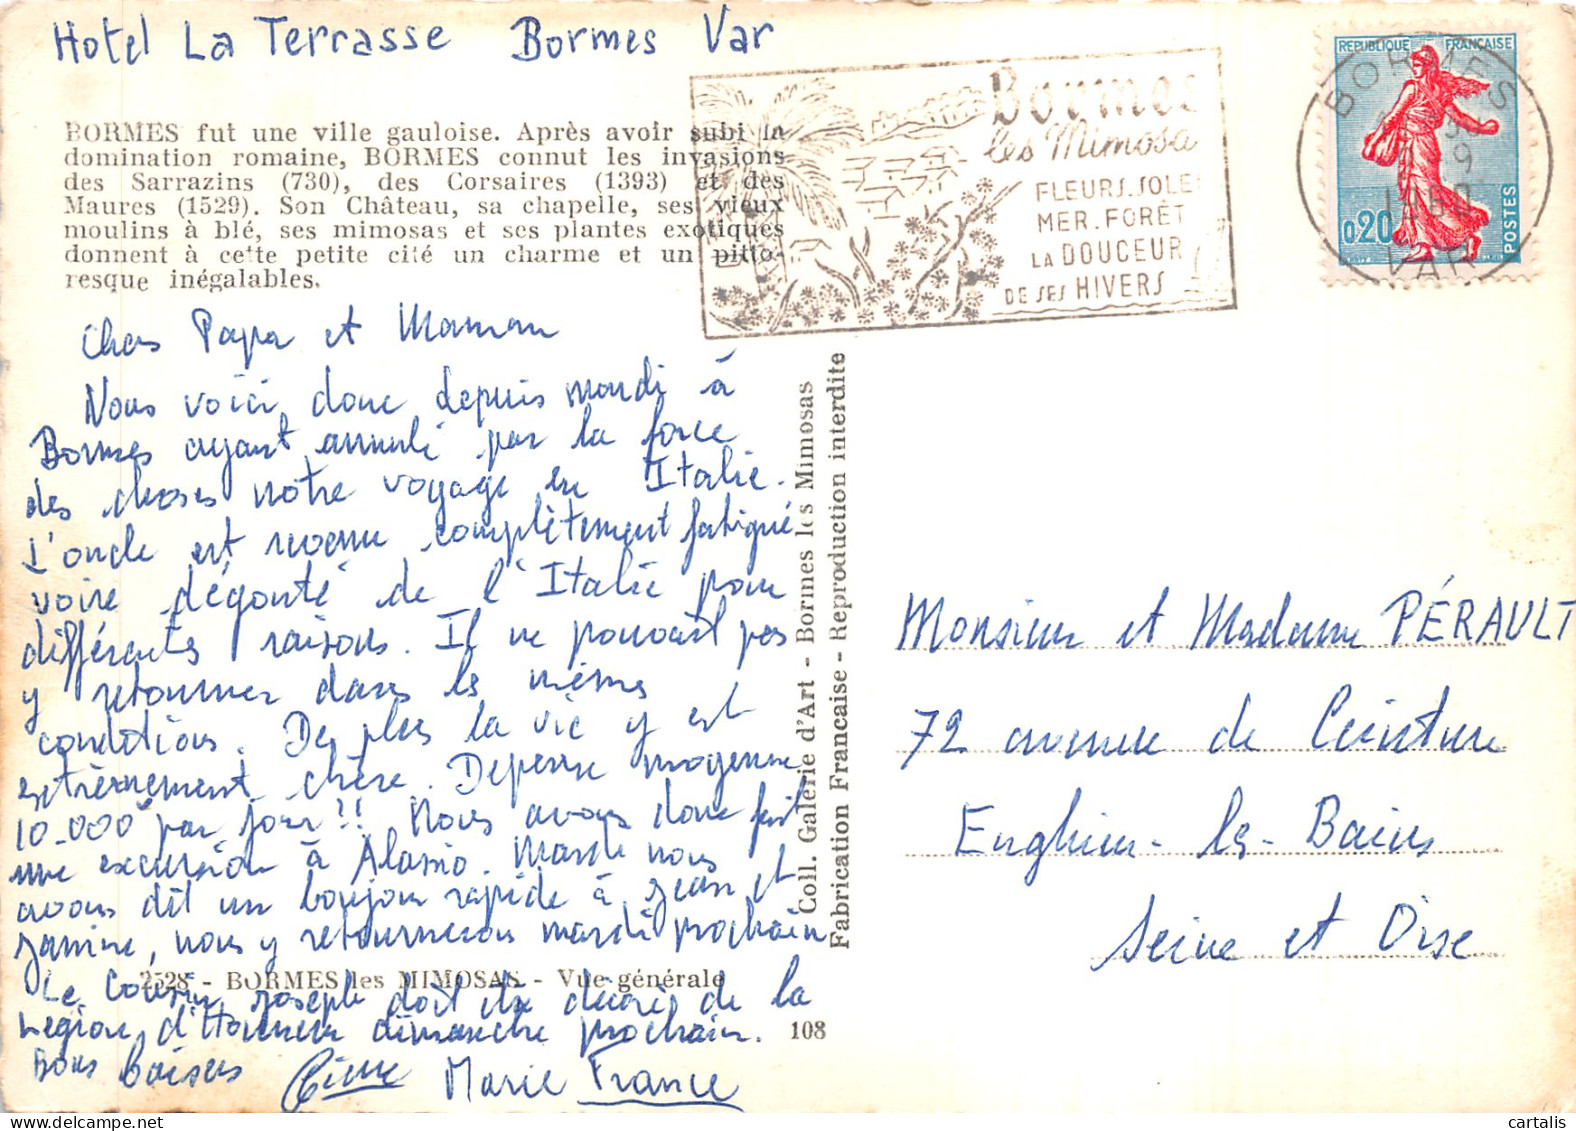 Hotel La Terrasse Bormes Var
BORMES fut une ville gauloise. Après avoir subi la
domination romaine, BORMES connut les invasions
des Sarrazins (730), des Corsaires (1393) et des
Maures (1529). Son Château, sa chapelle, ses vieux
moulins à blé, ses mimosas et ses plantes exotiques
donnent à cette petite cité un charme et un pitto-
resque inégalables.
Bormes
les Mimosa
FLEURS. SOLEI
MER. FORÊT
LA DOUCEUR
DE SES HIVERS
REPUBLIQUE FRANÇAISE
0,20
POSTES
BORMES
VAR
Chers Papa et Maman
Nous voici donc depuis mardi à
Bormes ayant annulé par la force
des choses notre voyage en Italie.
L'oncle est revenu complètement fatigué
voire dégoûté de l'Italie pour
différentes raisons. Il ne pouvait pas
y retourner dans les mêmes
conditions. De plus la vie y est
extrèmement chère. Depense moyenne
10.000 par jour!! Nous avons donc fait
une excursion à Alassio. Mardi nous
avons dit un bonjour rapide à Jean et
Janine, nous y retournerons mardi prochain
2528 - BORMES les MIMOSAS - Vue générale
Le Cousin Joseph doit être décoré de la
Légion d'Honneur dimanche prochain.
Bons baisers Marie France
108
Coll. Galerie d'Art - Bormes les Mimosas
Fabrication Francaise - Reproduction interdite
Monsieur et Madame PÉRAULT
72 avenue de Ceinture
Enghien-les-Bains
Seine et Oise
cartalis.com